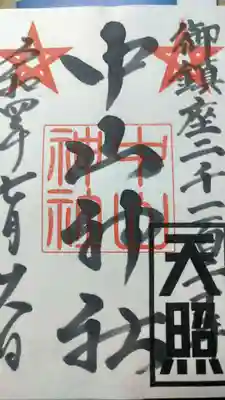 御鎮座二千二百十年
中山神社
中山
神社
天照
令和四年七月廿六日